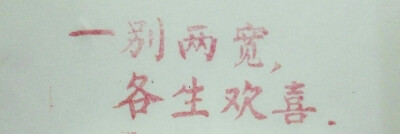 一别两宽,
各生欢喜.